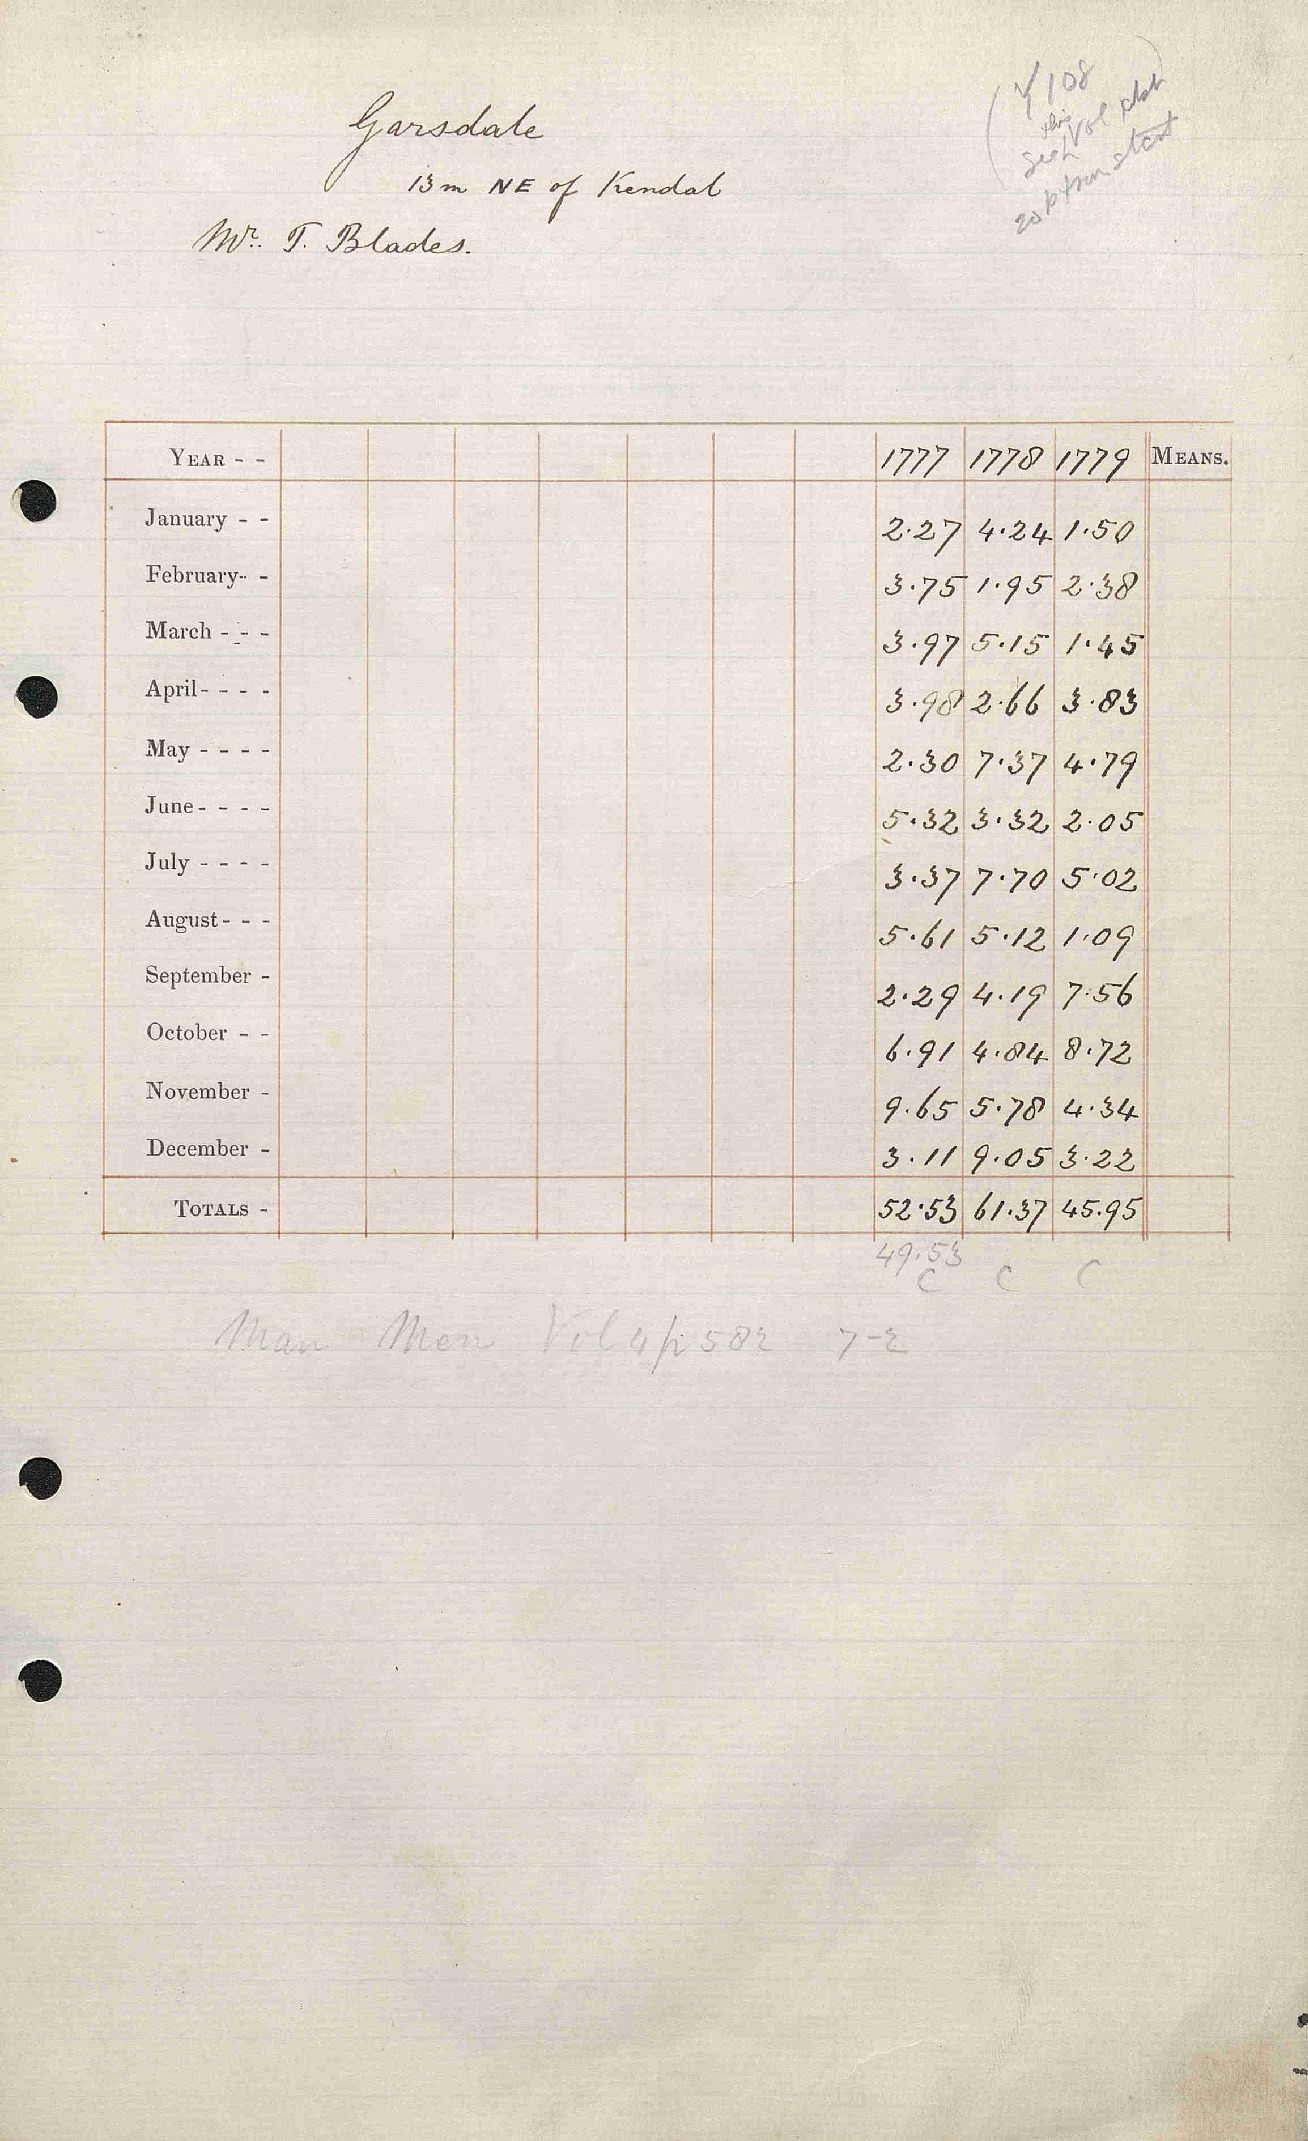 Garsdale
13m NE of Kendal
Mr. T. Blades.
Y 108
this
Vol
start
YEAR - - 1777 1778 1779 MEANS.
January - - 2.27 4.24 1.50
February - - 3.75 1.95 2.38
March - - - 3.97 5.15 1.45
April - - - - 3.98 2.66 3.83
May - - - - 2.30 7.37 4.79
June - - - - 5.32 3.32 2.05
July - - - - 3.37 7.70 5.02
August - - - 5.61 5.12 1.09
September - 2.29 4.19 7.56
October - - 6.91 4.84 8.72
November - 9.65 5.78 4.34
December - 3.11 9.05 3.22
TOTALS - 52.53 61.37 45.95
49.53
C C C
Man Mem Vol 4 p 582 7-2